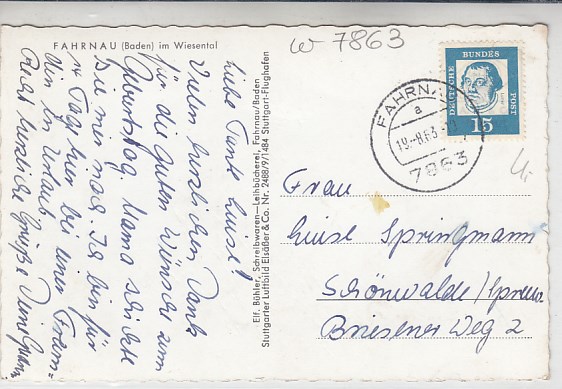 FAHRNAU (Baden) im Wiesental
w 7863
Liebe Tante Luise!
Vielen herzlichen Dank
für die guten Wünsche zum
Geburtstag. Mama schickte
Sie mir nach. Ich bin für
14 Tage hier bei einer Freun-
din in Urlaub.
Recht herzliche Grüße Deine
Elf. Bühler, Schreibwaren—Leihbücherei, Fahrnau/Baden
Stuttgarter Luftbild Elsäßer & Co. Nr. 2488/9/1484 Stuttgart-Flughafen
DEUTSCHE BUNDESPOST
15
FAHRNAU
a
19.-8.63
7863
Frau
Luise Springmann
Schönwalde/Spreew
Briesener Weg 2